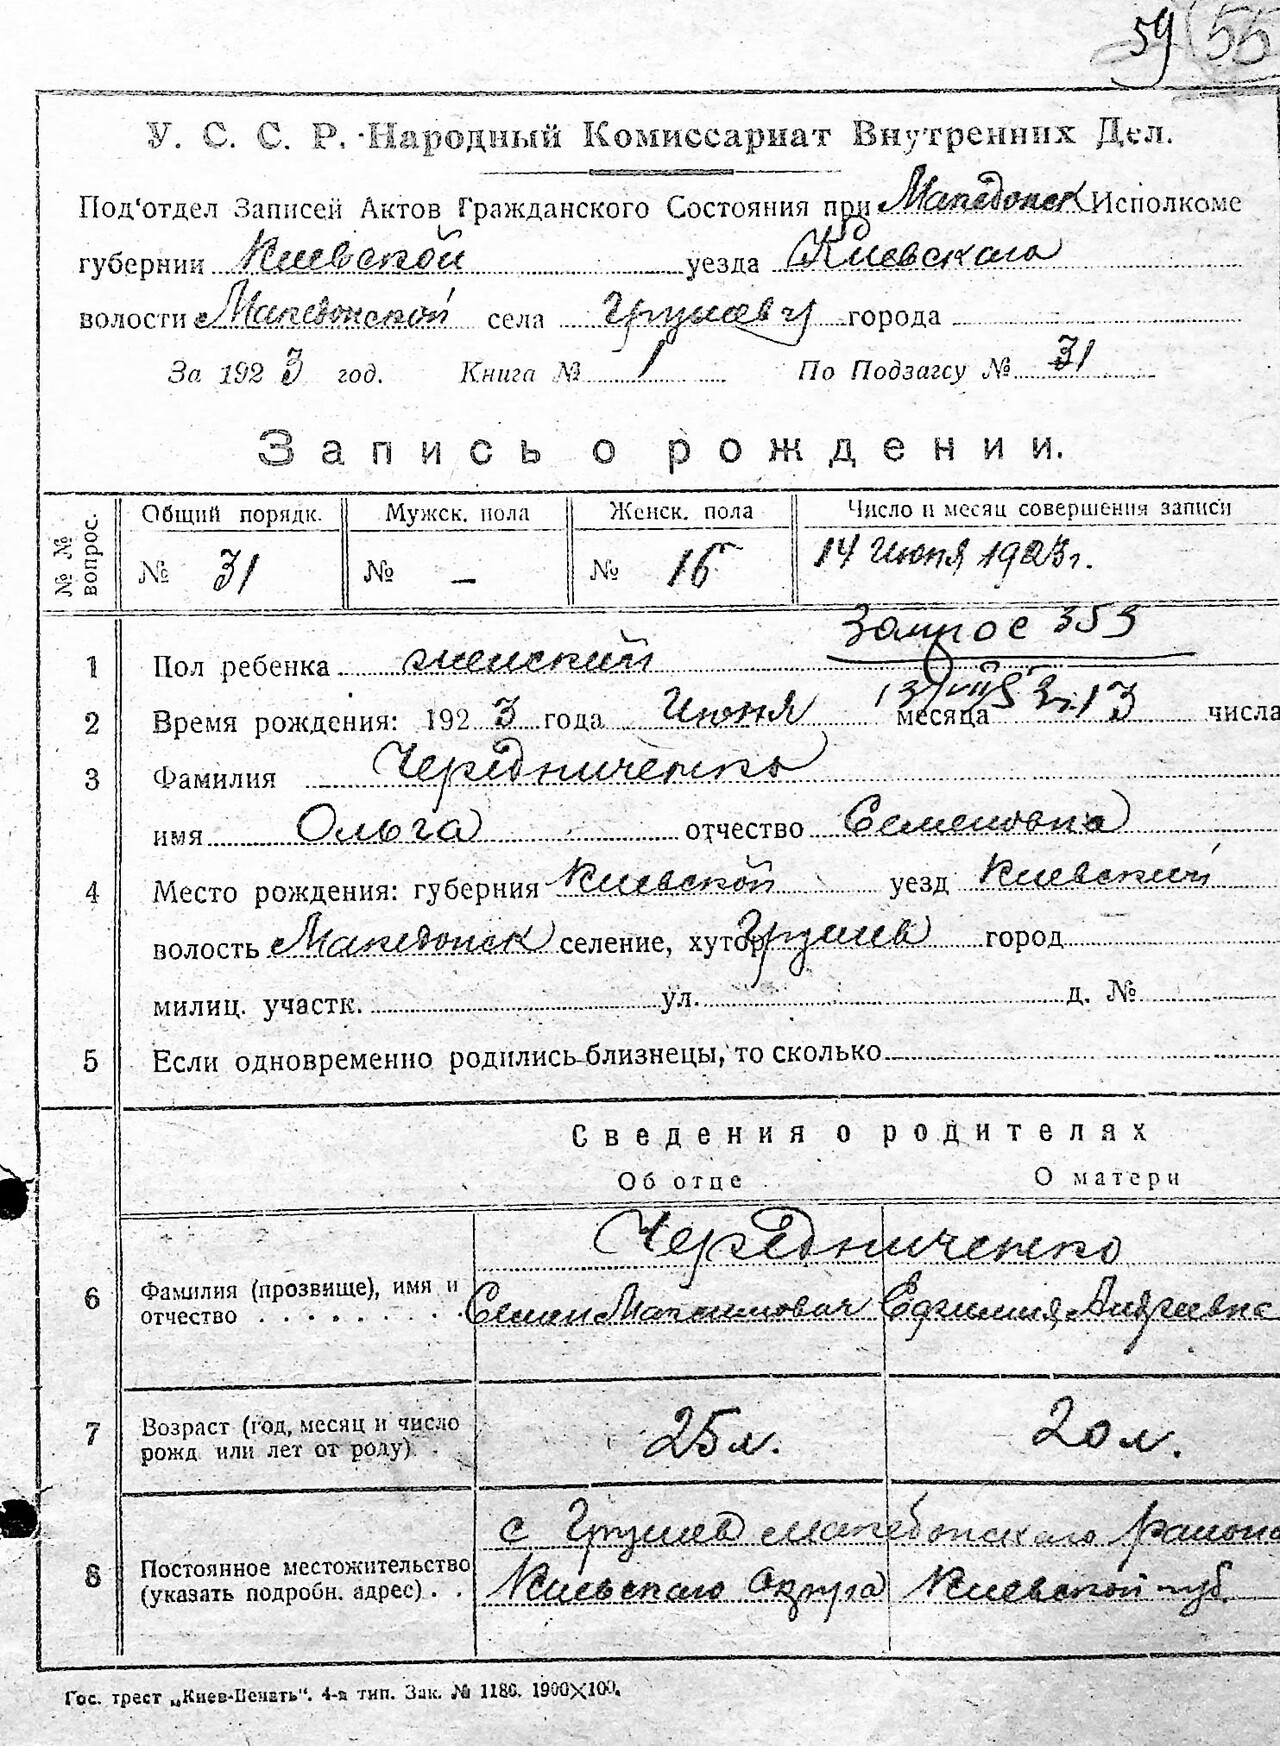 59 (55
У. С. С. Р. Народный Комиссариат Внутренних Дел.
Под'отдел Записей Актов Гражданского Состояния при Македонск Исполкоме
губернии Киевской уезда Киевскаго
волости Македонской села Грушеву города
За 1923 год. Книга № 1 По Подзагсу № 31
Запись о рождении.
№ № вопрос.
Общий порядк. Мужск. пола Женск. пола Число и месяц совершения записи
№ 31 № — № 15 14 Июня 1923 г.
Запрос 353
1 Пол ребенка женский
2 Время рождения: 1923 года Июня месяца 13 числа
3 Фамилия Чередниченко
имя Ольга отчество Семеновна
4 Место рождения: губерния Киевской уезд Киевский
волость Македонск селение, хутор Грушев город
милиц. участк. ул. д. №
5 Если одновременно родились близнецы, то сколько
Сведения о родителях
Об отце О матери
Чередниченко
6 Фамилия (прозвище), имя и
отчество Семен Максимович Ефимия Андреевна
7 Возраст (год, месяц и число
рожд или лет от роду). 25 л. 20 л.
с Грушев Македонскаго района
8 Постоянное местожительство
(указать подробн. адрес) Киевскаго Округа Киевской губ.
Гос. трест „Киев-Печать“. 4-я тип. Зак. № 1186. 1900×100.